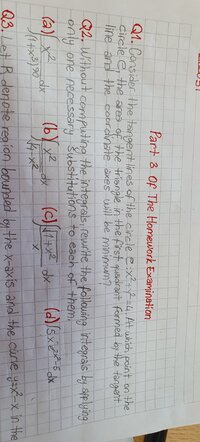 Part 3 Of The Homework Examination
Q1. Consider the tangent lines of the circle C: x²+y²=4. At which point on the
circle C, the area of the triangle in the first quadrant formed by the tangent
line and the coordinate axes will be minimum?
Q2. Without computing the integrals rewrite the following integrals by applying
only one necessary substitutions to each of them.
(a) ∫ x²/(1+x³)⁹⁰ dx (b) ∫ x²/√(1-x²) dx (c) ∫ √(1+x²)/x dx (d) ∫ 5x 2^(x²-5) dx
Q3. Let R denote region bounded by the x-axis and the curve y=x²-x in the